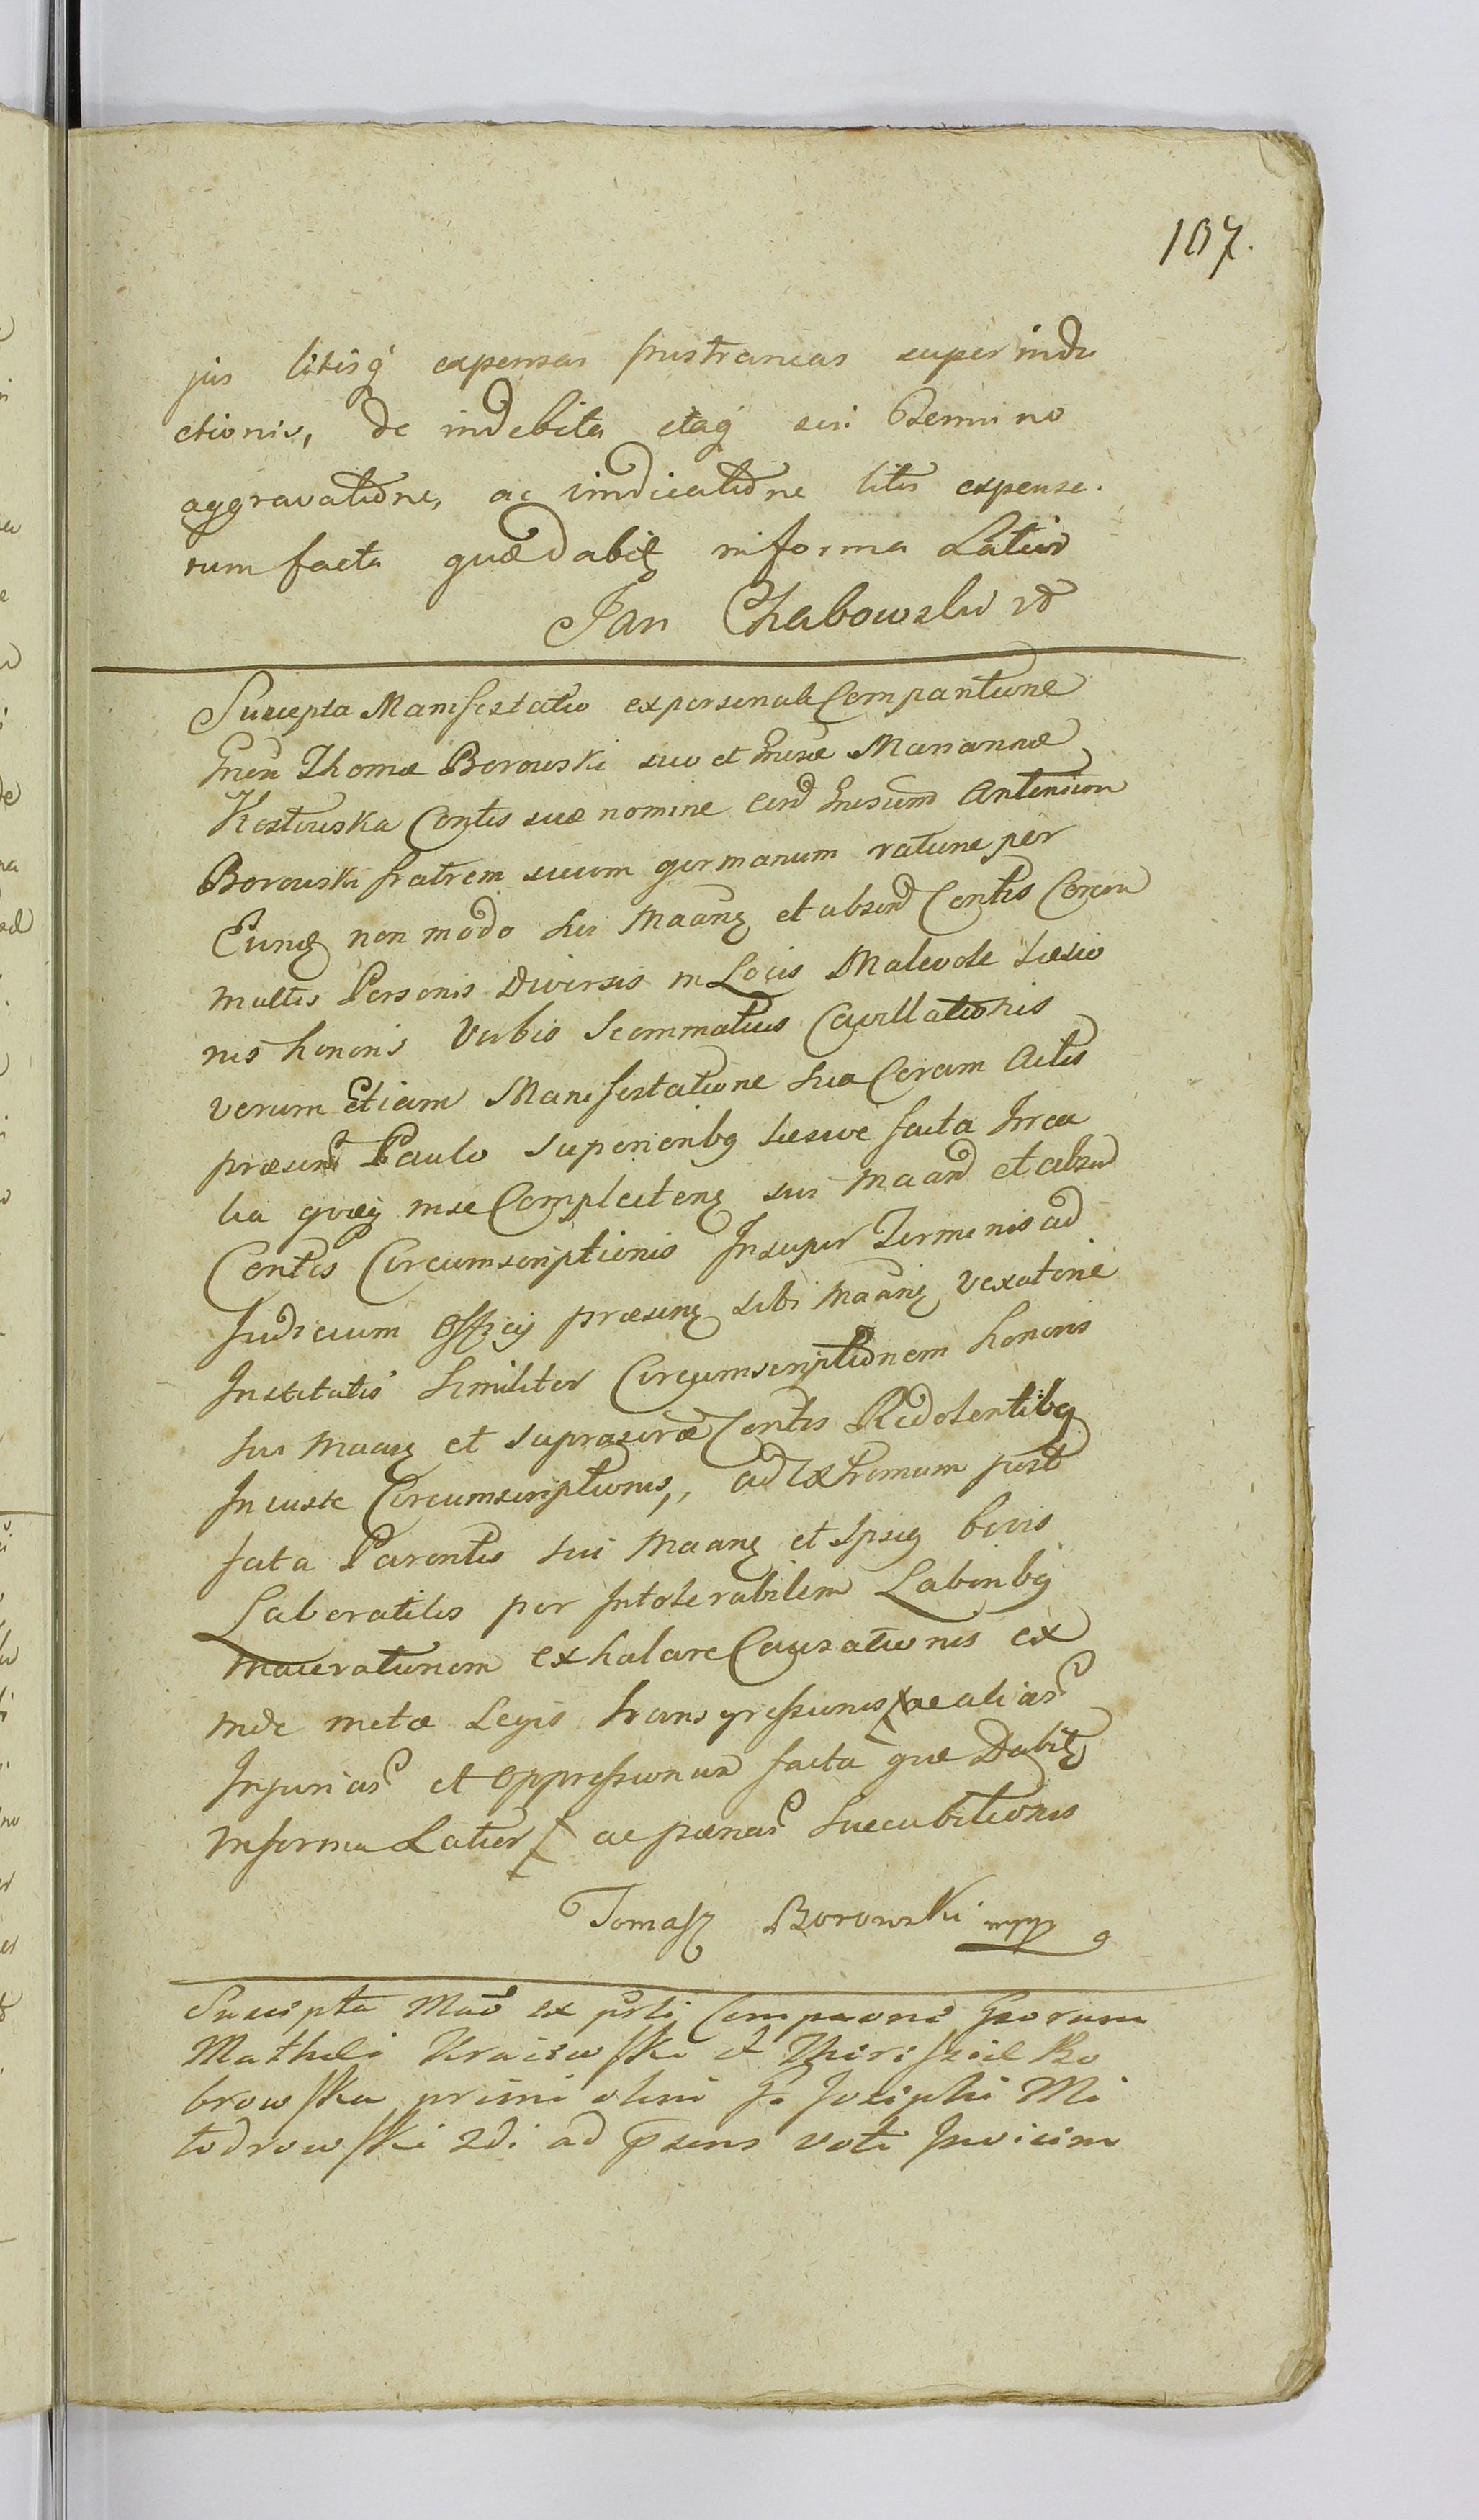 107.
jus litisq́ expensas frustraneas superindu
ctionis, de indebita itaq́ sui Termino
aggravatione, ac vindicatione litis expensa.
rum facta quæ dabitꝫ in forma Latior
Jan Chabowski
Suscepta Manifestatio ex personali Comparitione
Gnesi Thomæ Borowski suo et Gnesæ Mariannæ
Kostowska Contis suæ nomine Cend Gnesum Antonium
Borowski fratrem suum germanum ratione per
Eundꝫ non modo sui Maanꝫ et absend Contis Coram
multis Personis Diversis in Locis Malevole Læsio
nis honoris Verbis Scommaticis Cavillationis
verum Etiam Manifestatione sua Coram Actis
præsent Paulo Superioribꝫ Læsive facta Irrea
lia quævis in se Complectenꝫ sui Maand et absend
Contis Circumscriptionis Insuper Terminis ad
Judicium Officij præsenꝫ sibi Maanꝫ vexatone
Institutis Similiter Circumscriptionem honoris
sui Maanꝫ et suprascræ Contis Redolentibꝫ
Iniuste Circumscriptionis,, ad Extremum post
fata Parentis sui Maanꝫ et Ipsiꝫ bovis
Laboratilis per Intolerabilem Laboribꝫ
macerationem exhalare Causationis ex
inde metæ Legis transgressionis ac alias
Injurias et oppressionum facta quæ Dabitꝫ
in forma Latior ac pænas Succubitionis
Tomasz Borowski mpp
Suscepta Mao ex psli Compaone Gsorum
Mathei Kraiewski et Bo
browska primi olim G. Josephi Mi
todrowski 2di ad psens voti Invicim